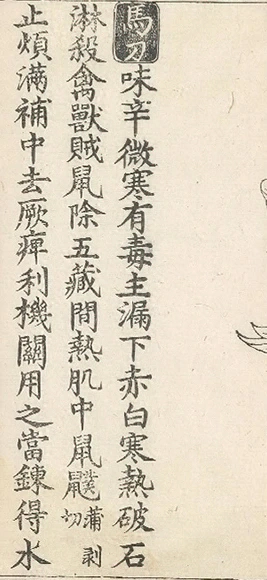 馬刀味辛微寒有毒主漏下赤白寒熱破石
淋殺禽獸賊鼠除五藏間熱肌中鼠蒲剥切
止煩滿補中去厥痺利機關用之當鍊得水